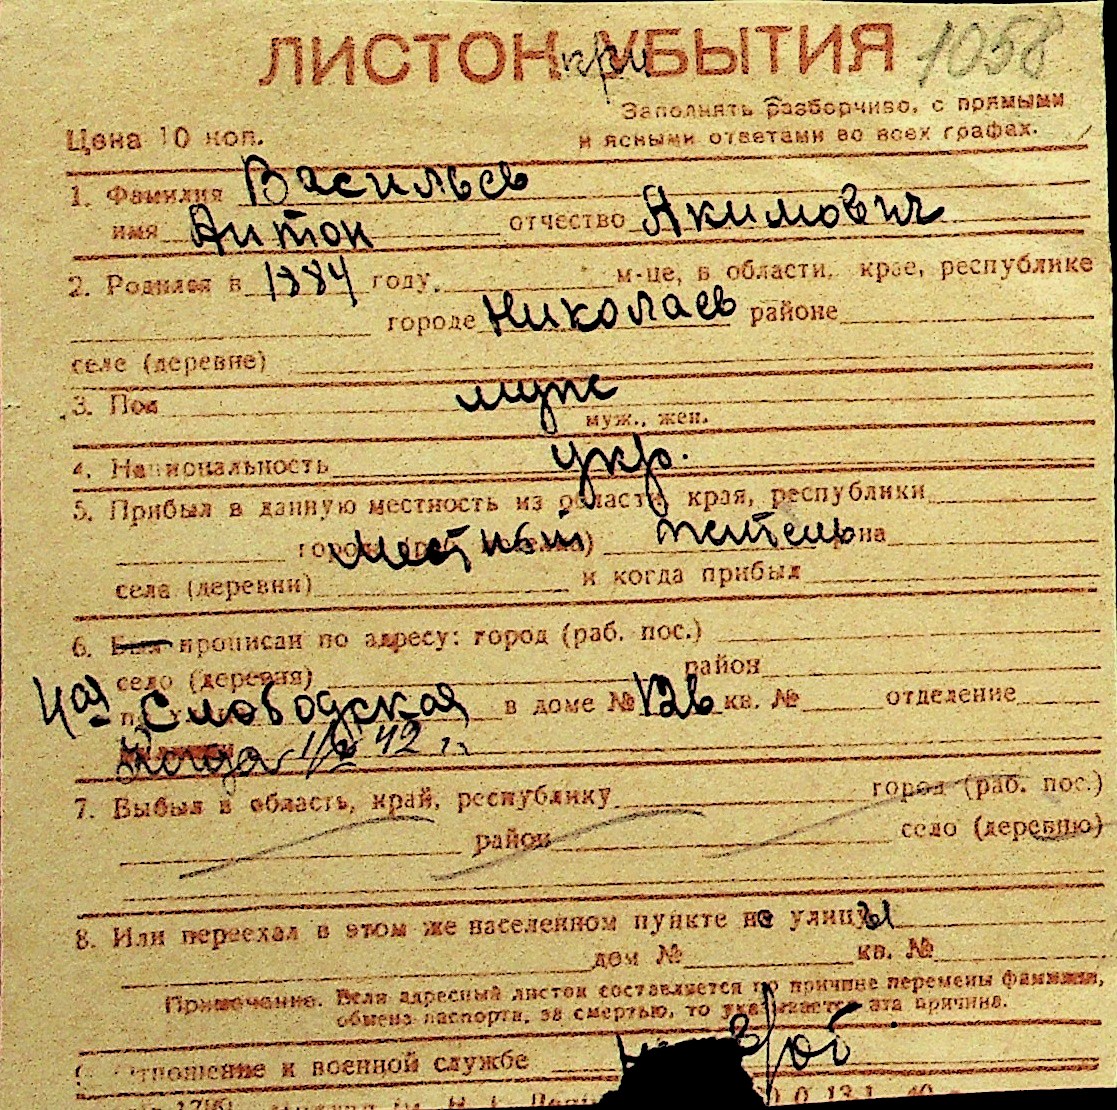 ЛИСТОК при УБЫТИЯ 1058
Заполнять разборчиво, с прямыми
Цена 10 коп. и ясными ответами во всех графах.
1. Фамилия Васильев
имя Антон отчество Якимович
2. Родился в 1884 году, м-це, в области, крае, республике
городе Николаев районе
селе (деревне)
3. Пол муж
муж., жен.
4. Национальность укр.
5. Прибыл в данную местность из области, края, республики
города Местный житель на
села (деревни) и когда прибыл
6. Был прописан по адресу: город (раб. пос.)
село (деревня) район
4ая Слободская в доме № 12в кв. № отделение
Когда 42 г.
7. Выбыл в область, край, республику город (раб. пос.)
район село (деревню)
8. Или переехал в этом же населенном пункте на улицы
дом № кв. №
Примечание. Если адресный листок составляется по причине перемены фамилии,
обмена паспорта, за смертью, то указывается эта причина.
отношение к военной службе